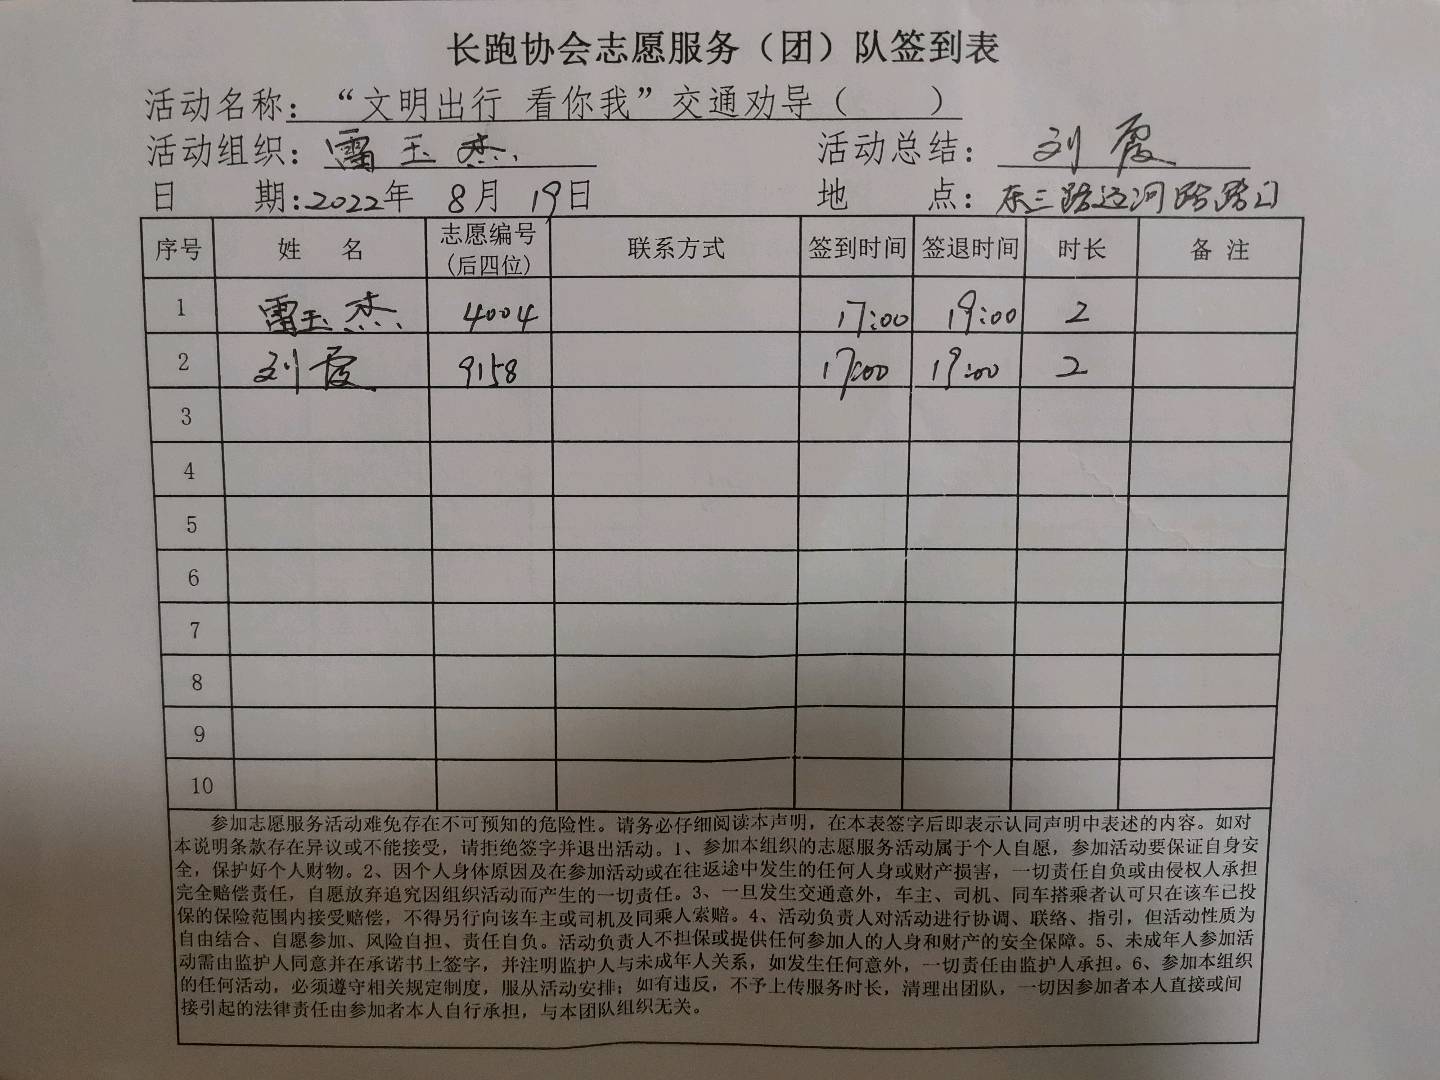 长跑协会志愿服务（团）队签到表
活动名称：“文明出行 看你我”交通劝导（ ）
活动组织：雷玉杰 活动总结：刘霞
日 期：2022年 8月 19日 地 点：东三路辽河路路口
序号 姓 名 志愿编号（后四位） 联系方式 签到时间 签退时间 时长 备 注
1 雷玉杰 4004 17:00 19:00 2
2 刘霞 9158 17:00 19:00 2
3
4
5
6
7
8
9
10
参加志愿服务活动难免存在不可预知的危险性。请务必仔细阅读本声明，在本表签字后即表示认同声明中表述的内容。如对
本说明条款存在异议或不能接受，请拒绝签字并退出活动。1、参加本组织的志愿服务活动属于个人自愿，参加活动要保证自身安
全，保护好个人财物。2、因个人身体原因及在参加活动或在往返途中发生的任何人身或财产损害，一切责任自负或由侵权人承担
完全赔偿责任，自愿放弃追究因组织活动而产生的一切责任。3、一旦发生交通意外，车主、司机、同车搭乘者认可只在该车已投
保的保险范围内接受赔偿，不得另行向该车主或司机及同乘人索赔。4、活动负责人对活动进行协调、联络、指引，但活动性质为
自由结合、自愿参加、风险自担、责任自负。活动负责人不担保或提供任何参加人的人身和财产的安全保障。5、未成年人参加活
动需由监护人同意并在承诺书上签字，并注明监护人与未成年人关系，如发生任何意外，一切责任由监护人承担。6、参加本组织
的任何活动，必须遵守相关规定制度，服从活动安排；如有违反，不予上传服务时长，清理出团队，一切因参加者本人直接或间
接引起的法律责任由参加者本人自行承担，与本团队组织无关。